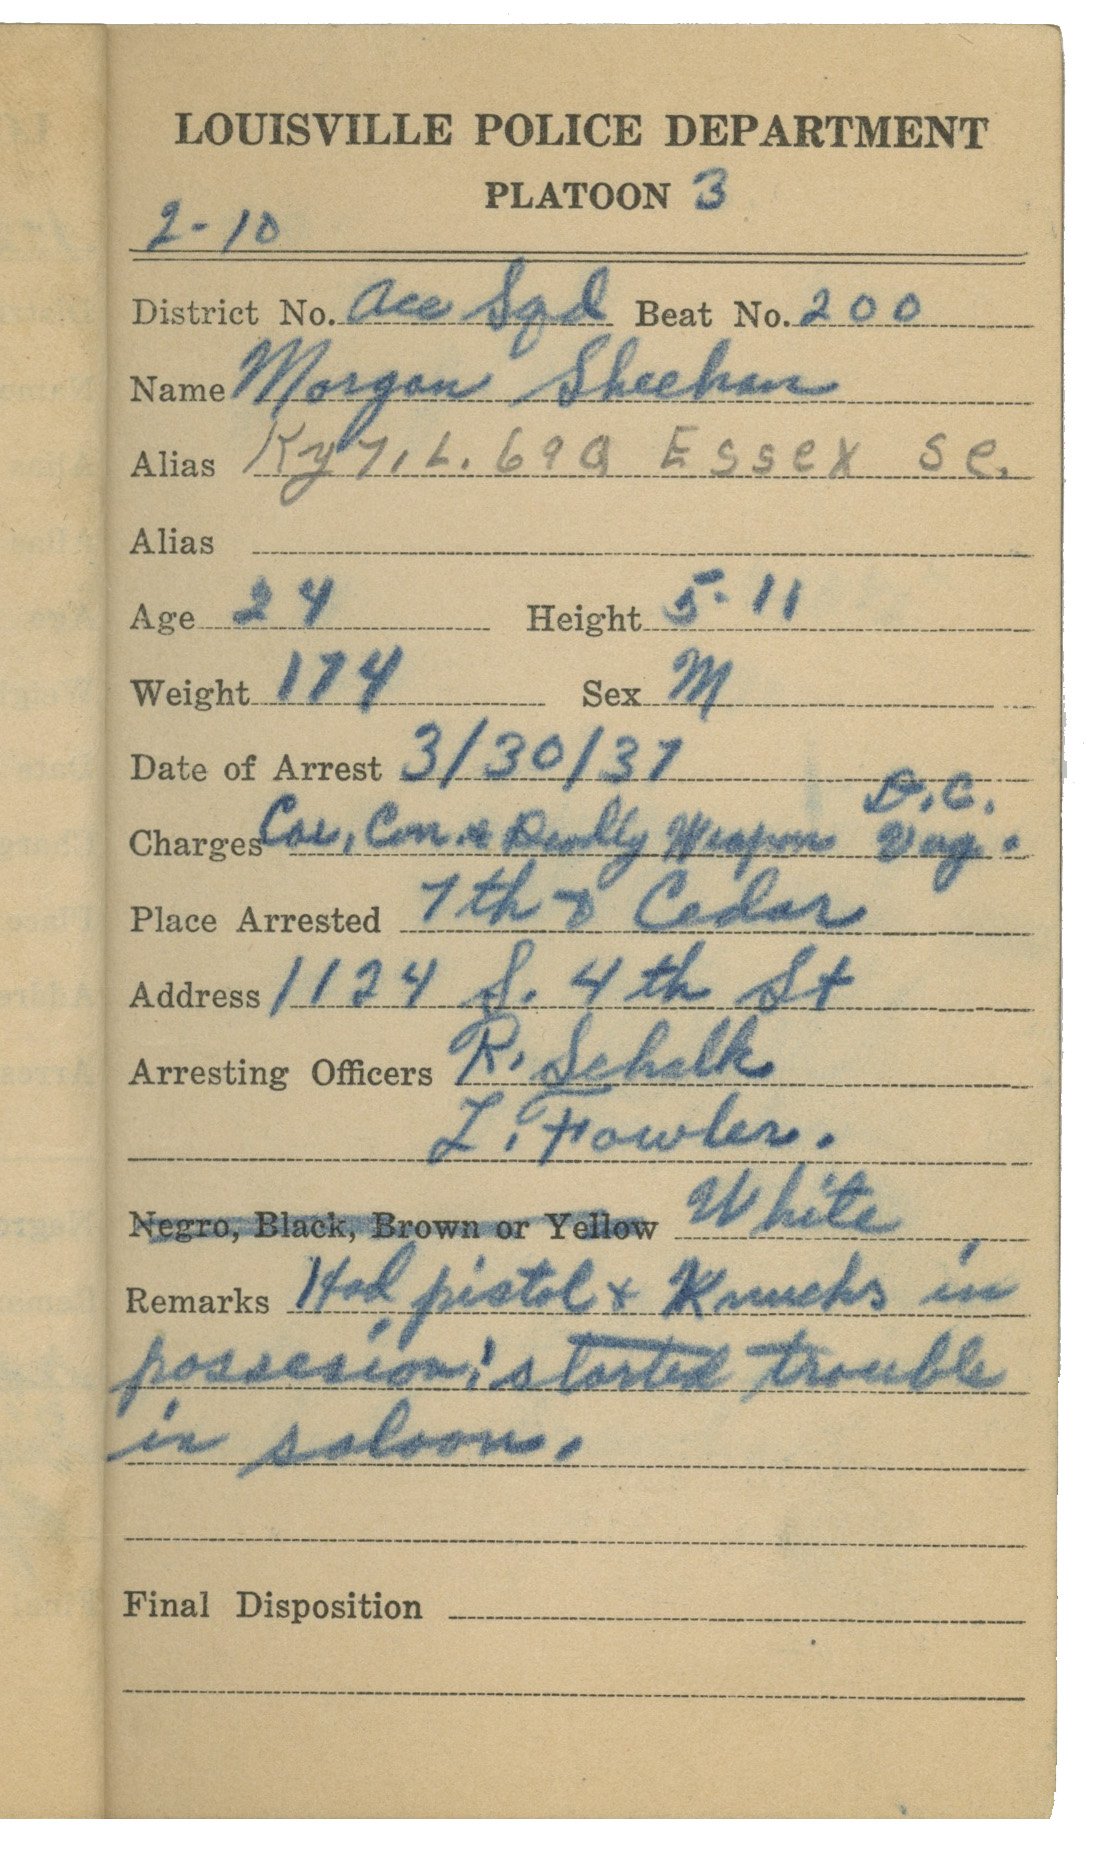 LOUISVILLE POLICE DEPARTMENT
PLATOON 3
2-10
District No. Ace Sqd Beat No. 200
Name Morgan Sheehan
Alias Ky 7. L. 69Q Essex Se.
Alias
Age 24 Height 5-11
Weight 174 Sex M
Date of Arrest 3/30/37
D.C.
Charges Car, Con. & Deadly Weapon Vag.
Place Arrested 7th & Cedar
Address 1124 S. 4th St
Arresting Officers R. Schalk
L. Fowler.
Negro, Black, Brown or Yellow White
Remarks Had pistol & Knucks in
possesion; started trouble
in saloon.
Final Disposition